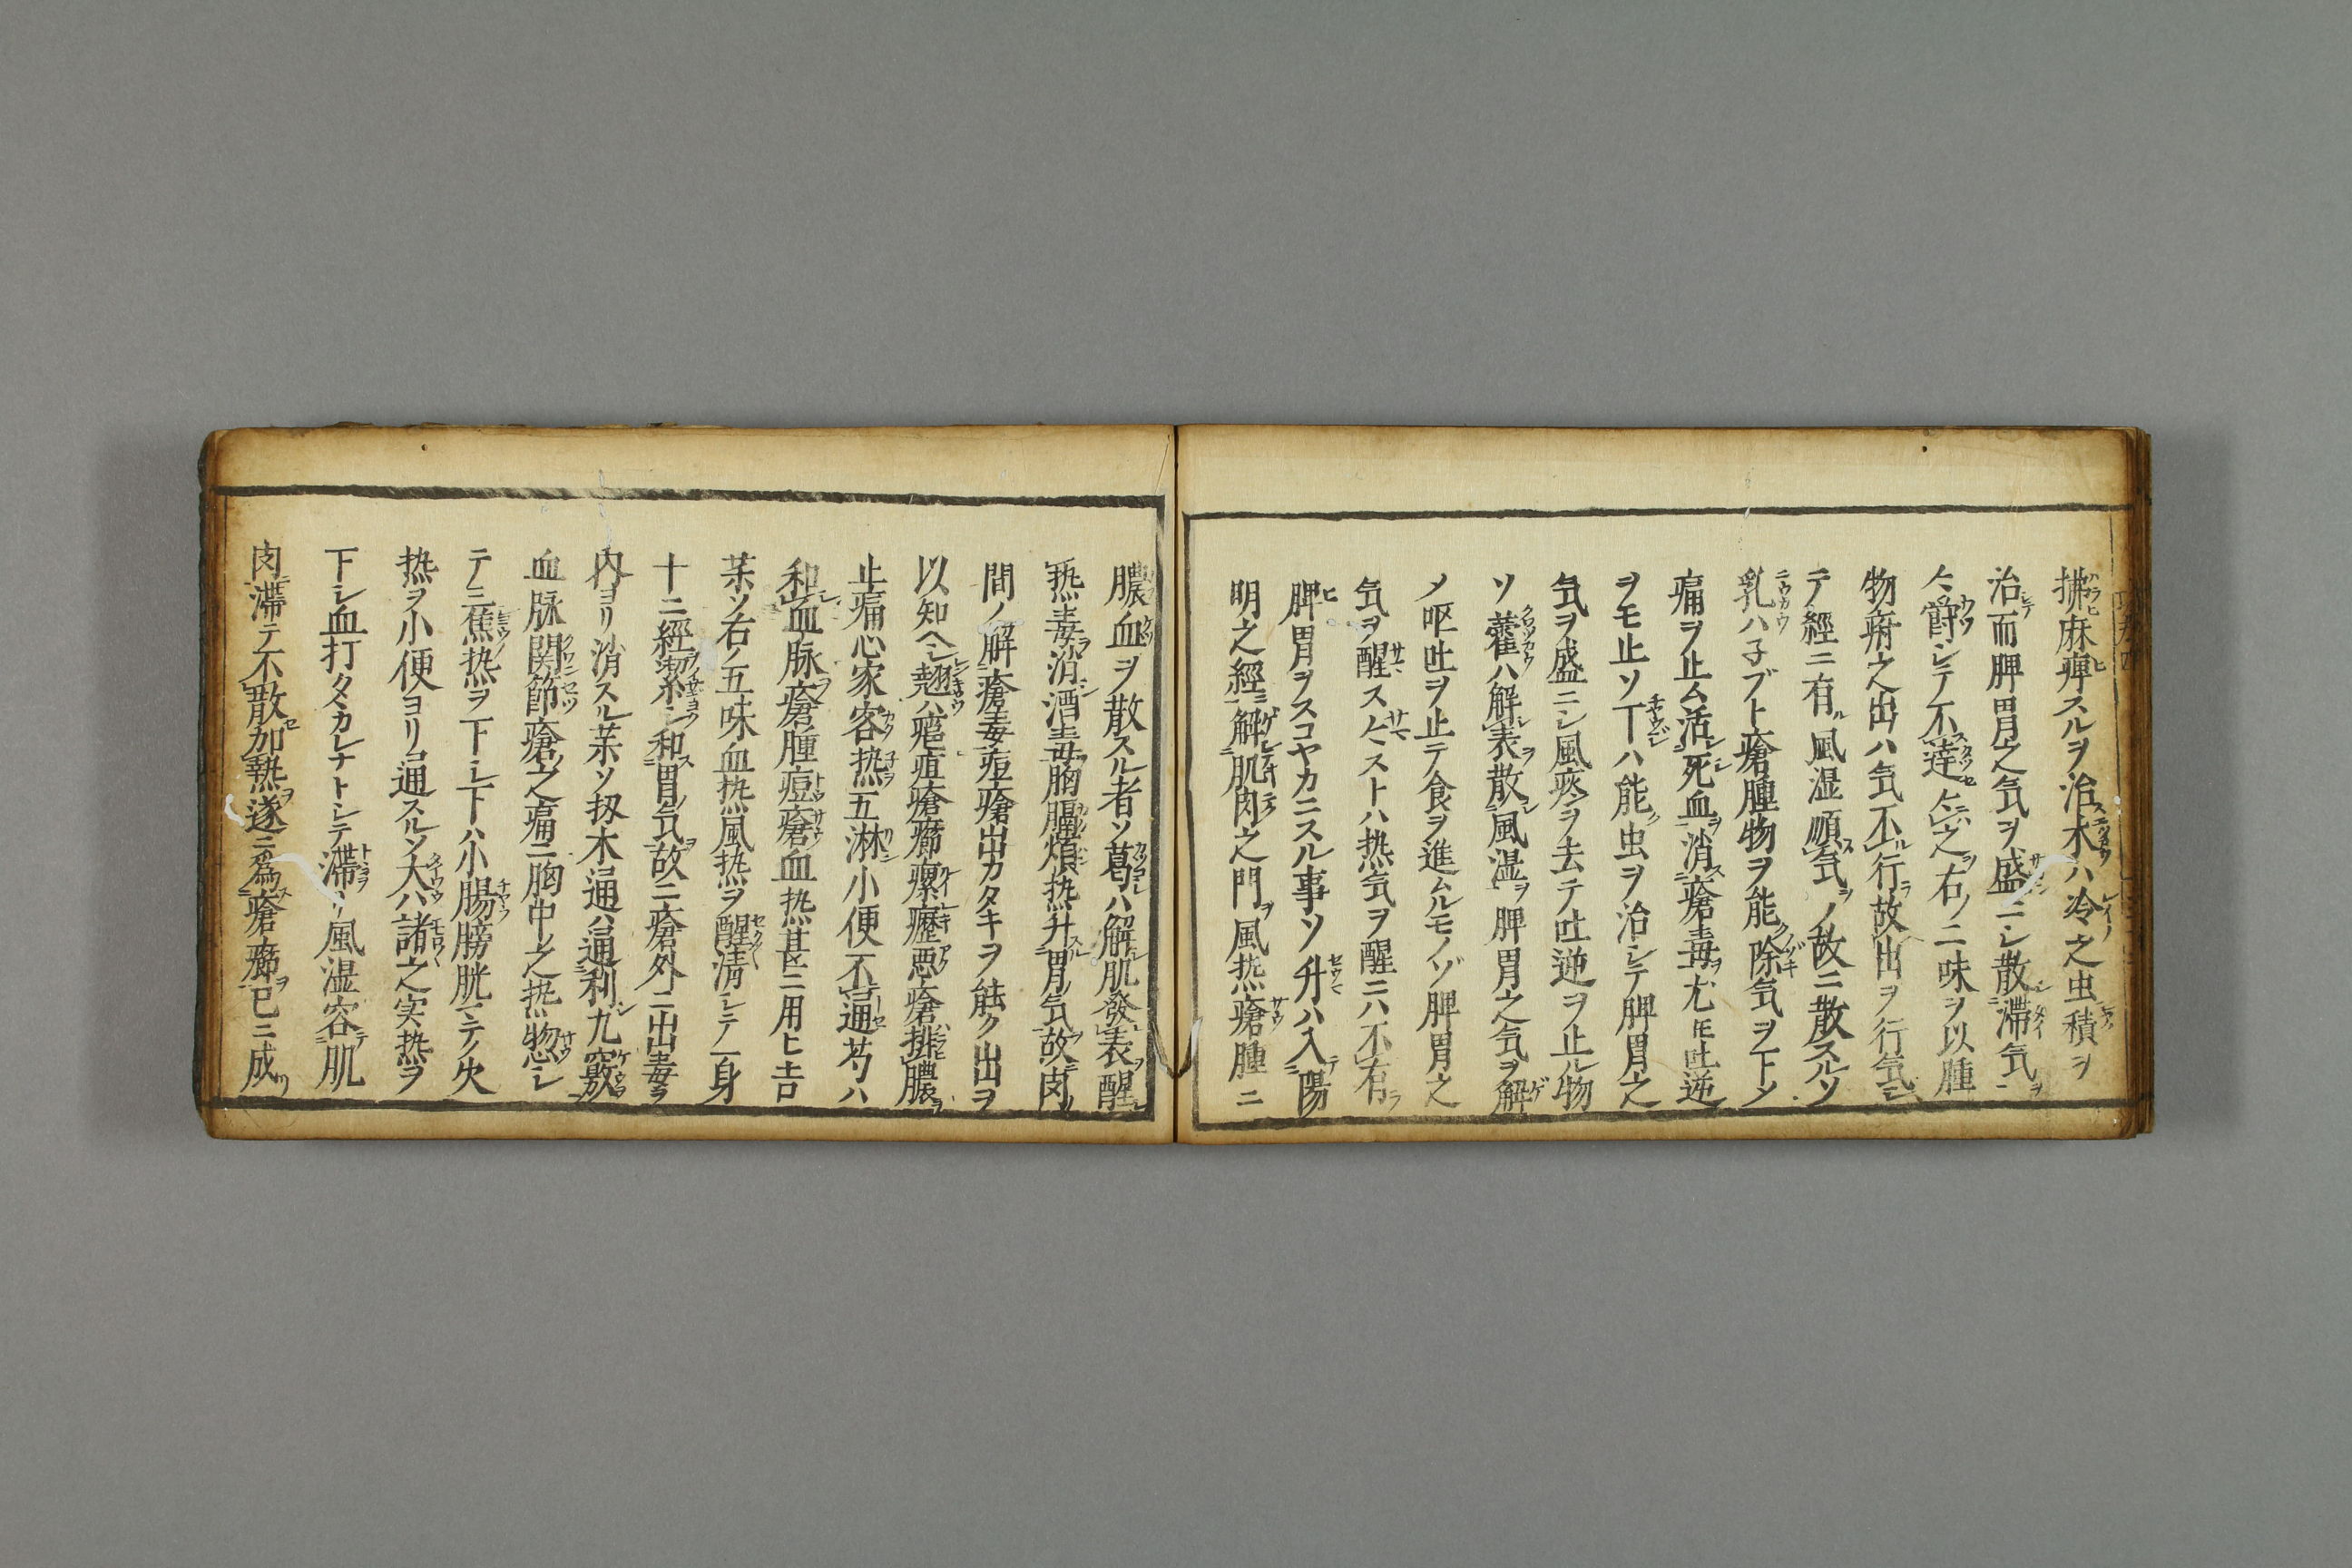 拂麻痺スルヲ治木ハ冷之虫積ヲ
治而脾胃之気ヲ盛ニシ散滞気ヲ
欝シテ不達之右ノ二味ヲ以腫
物癰之出ハ気不行故出ヲ行気
テ經ニ有風湿順気ノ故ニ散スルソ
乳ハ子ブト瘡腫物ヲ能除気ヲ下メ
痛ヲ止ム活死血消瘡毒尤吐逆
ヲモ止ソ丁ハ能虫ヲ治シテ脾胃之
気ヲ盛ニシ風痰ヲ去テ吐逆ヲ止ル物
ソ藿ハ解表散風湿ヲ脾胃之気ヲ解
メ呕吐ヲ止テ食ヲ進ムルモノゾ脾胃之
気ヲ醒ストハ热気ヲ醒ニハ不有
脾胃ヲスコヤカニスル事ソ升ハ入陽
明之經解肌肉之門風热瘡腫ニ
膿血ヲ散スル者ソ葛ハ解肌發表醒
热毒消酒毒胸膈煩热升胃気故肉
間ノ解瘡毒痘瘡出カタキヲ能ク出ヲ
以知ヘシ翹ハ疽瘡癤瘰癧悪瘡排膿
止痛心家客热五淋小便不通芍ハ
和血脉瘡腫痘瘡血热甚ニ用ヒ吉
薬ソ右ノ五味血热風热ヲ醒清シテ一身
十二經和胃気故ニ瘡外ニ出毒ヲ
内ヨリ消スル薬ソ扨木通ハ通利九竅
血脉関節瘡之痛ニ胸中之热惣シ
テ三焦热ヲ下シ下ハ小腸膀胱ニテノ火
热ヲ小便ヨリ通スルソ大ハ諸之実热ヲ
下シ血打タカレナトシテ滞リ風湿客肌
肉滞テ不散加熱遂ニ為瘡癤已ニ成